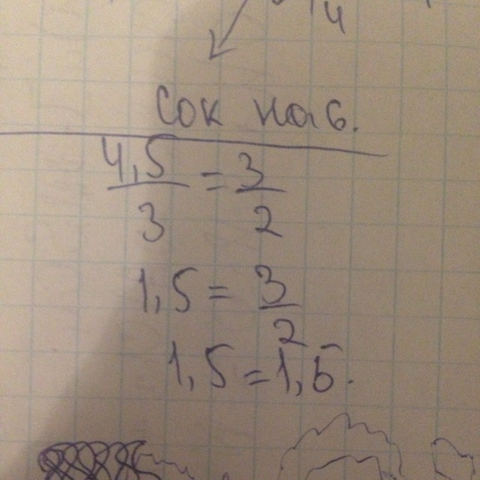 4
Сок на б.
4,5/3 = 3/2
1,5 = 3/2
1,5 = 1,5.